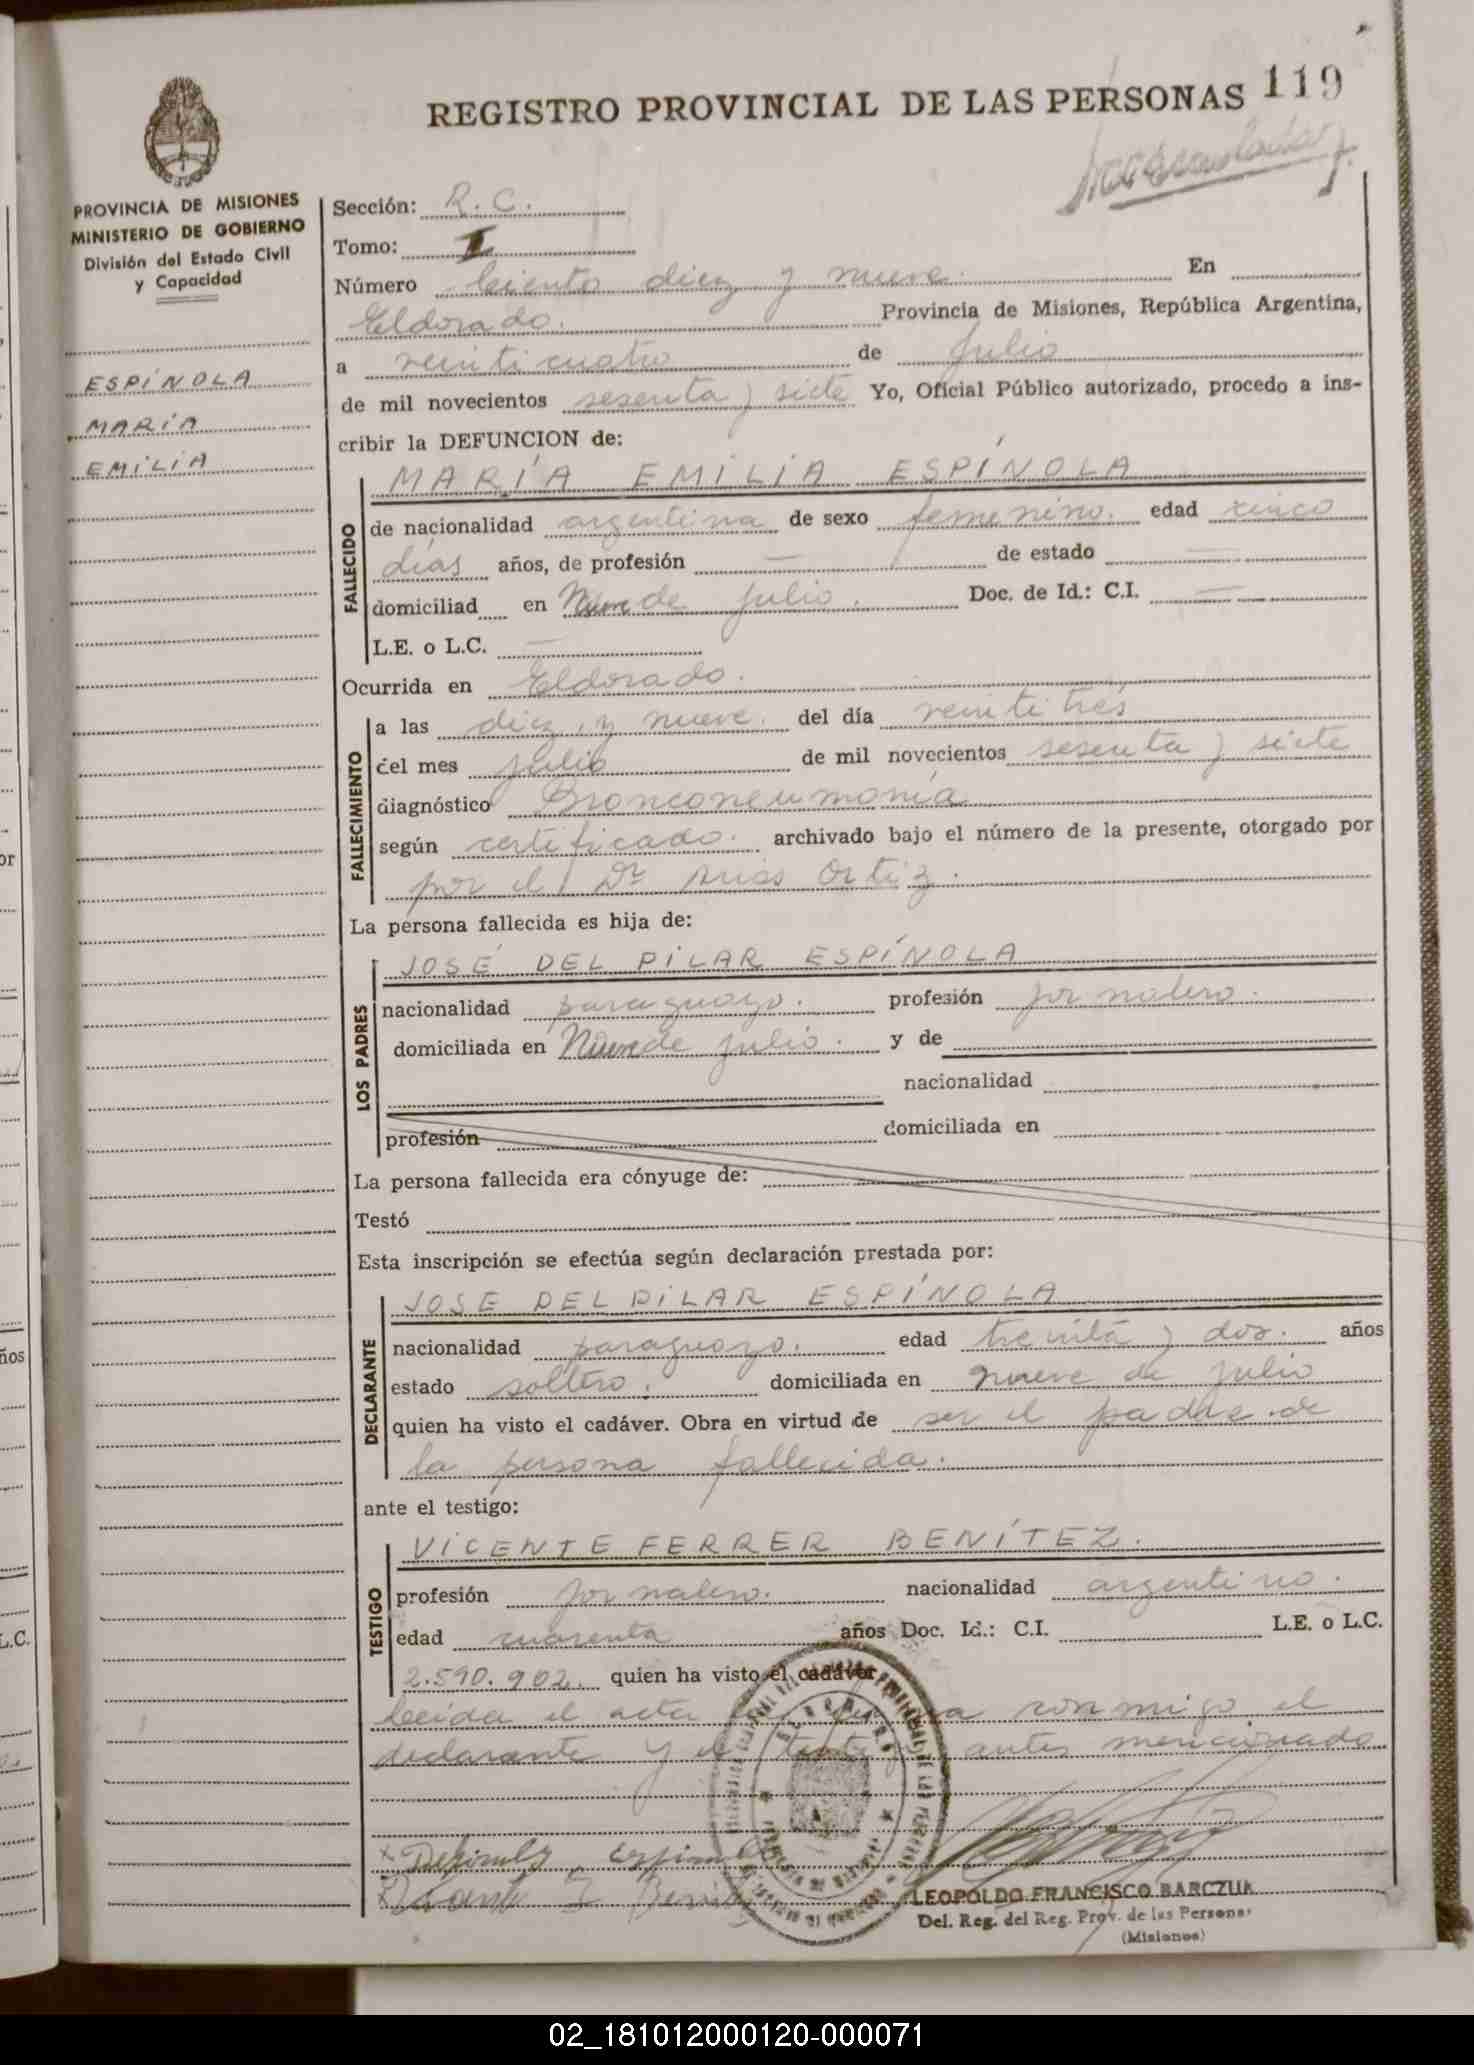 REGISTRO PROVINCIAL DE LAS PERSONAS 119
PROVINCIA DE MISIONES
MINISTERIO DE GOBIERNO
División del Estado Civil
y Capacidad
ESPÍNOLA
MARÍA
EMILIA
Sección: R. C.
Tomo: I
Número Ciento diez y nueve. En
Eldorado. Provincia de Misiones, República Argentina,
a veinticuatro de Julio
de mil novecientos sesenta y siete Yo, Oficial Público autorizado, procedo a ins-
cribir la DEFUNCION de:
MARÍA EMILIA ESPÍNOLA
FALLECIDO
de nacionalidad argentina de sexo femenino. edad cinco
días años, de profesión — de estado —
domiciliad en de julio. Doc. de Id.: C.I. —
L.E. o L.C. —
Ocurrida en Eldorado.
FALLECIMIENTO
a las diez y nueve. del día veintitrés
del mes julio de mil novecientos sesenta y siete
diagnóstico Bronconeumonía
según certificado. archivado bajo el número de la presente, otorgado por
por el Dr Ortiz.
La persona fallecida es hija de:
LOS PADRES
JOSÉ DEL PILAR ESPÍNOLA
nacionalidad paraguayo. profesión jornalero.
domiciliada en de julio. y de
nacionalidad
profesión domiciliada en
La persona fallecida era cónyuge de:
Testó
Esta inscripción se efectúa según declaración prestada por:
DECLARANTE
JOSE DEL PILAR ESPÍNOLA
nacionalidad paraguayo. edad treinta y dos. años
estado soltero. domiciliada en nueve de julio
quien ha visto el cadáver. Obra en virtud de ser el padre de
la persona fallecida.
ante el testigo:
TESTIGO
VICENTE FERRER BENÍTEZ.
profesión jornalero. nacionalidad argentino.
edad cuarenta años Doc. Id.: C.I. L.E. o L.C.
2.590.902. quien ha visto el cadáver
Leída el acta conmigo el
declarante y el testigo antes mencionado
LEOPOLDO FRANCISCO BARCZUK
Del. Reg. del Reg. Prov. de las Personas
(Misiones)
02_181012000120-000071